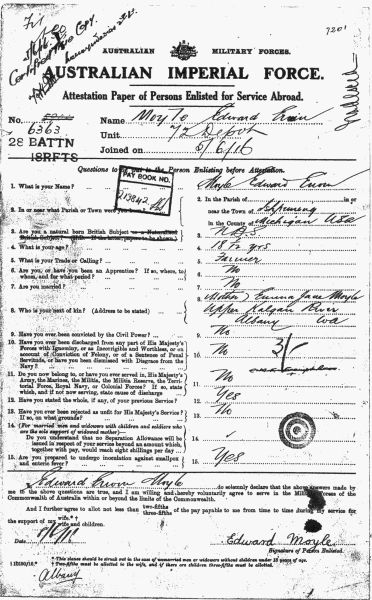 Certified True Copy.
7201
AUSTRALIAN MILITARY FORCES.
AUSTRALIAN IMPERIAL FORCE.
Attestation Paper of Persons Enlisted for Service Abroad.
No. 6363 Name Moyle Edward Erwin
28 BATTN Unit 72 Depot
18RFTS Joined on 5/6/16
Questions to be put to the Person Enlisting before Attestation.
PAY BOOK NO.
213842
1. What is your Name? 1. Moyle Edward Erwin
2. In or near what Parish or Town were you born? 2. In the Parish of in or
near the Town of Ishpeming
in the County of Michigan USA
3. Are you a natural born British Subject or a Naturalized
British Subject? (If the latter, papers to be shown) 3. N.B.S
4. What is your age? 4. 18 yrs
5. What is your Trade or Calling? 5. Farmer
6. Are you, or have you been an Apprentice? If so, where, to
whom, and for what period? 6. No
7. Are you married? 7. No
8. Who is your next of kin? (Address to be stated) 8. (Mother) Emma Jane Moyle
Upper Kalgan River
Albany WA
9. Have you ever been convicted by the Civil Power? 9. No
10. Have you ever been discharged from any part of His Majesty's
Forces with Ignominy, or as Incorrigible and Worthless, or on
account of Conviction of Felony, or of a Sentence of Penal
Servitude, or have you been dismissed with Disgrace from the
Navy? 10. No
3/-
11. Do you now belong to, or have you ever served in, His Majesty's
Army, the Marines, the Militia, the Militia Reserve, the Terri-
torial Force, Royal Navy, or Colonial Forces? If so, state
which, and if not now serving, state cause of discharge 11. No
12. Have you stated the whole, if any, of your previous Service? 12. Yes
13. Have you ever been rejected as unfit for His Majesty's Service?
If so, on what grounds? 13. No
14. (For married men and widowers with children and soldiers who
are the sole support of widowed mother)—
Do you understand that no Separation Allowance will be
issued in respect of your service beyond an amount which,
together with pay, would reach eight shillings per day 14.
15. Are you prepared to undergo inoculation against smallpox
and enteric fever? 15. Yes
I, Edward Erwin Moyle do solemnly declare that the above answers made
by me to the above questions are true, and I am willing and hereby voluntarily agree to serve in the Military Forces of the
Commonwealth of Australia within or beyond the limits of the Commonwealth.
And I further agree to allot not less than two-fifths
three-fifths of the pay payable to me from time to time during my service for
the support of my wife.*
wife and children.
Date
Edward Moyle
Signature of Person Enlisted.
* This clause should be struck out in the case of unmarried men or widowers without children under 18 years of age.
† Two-fifths must be allotted to the wife, and if there are children three-fifths must be allotted.
Albany